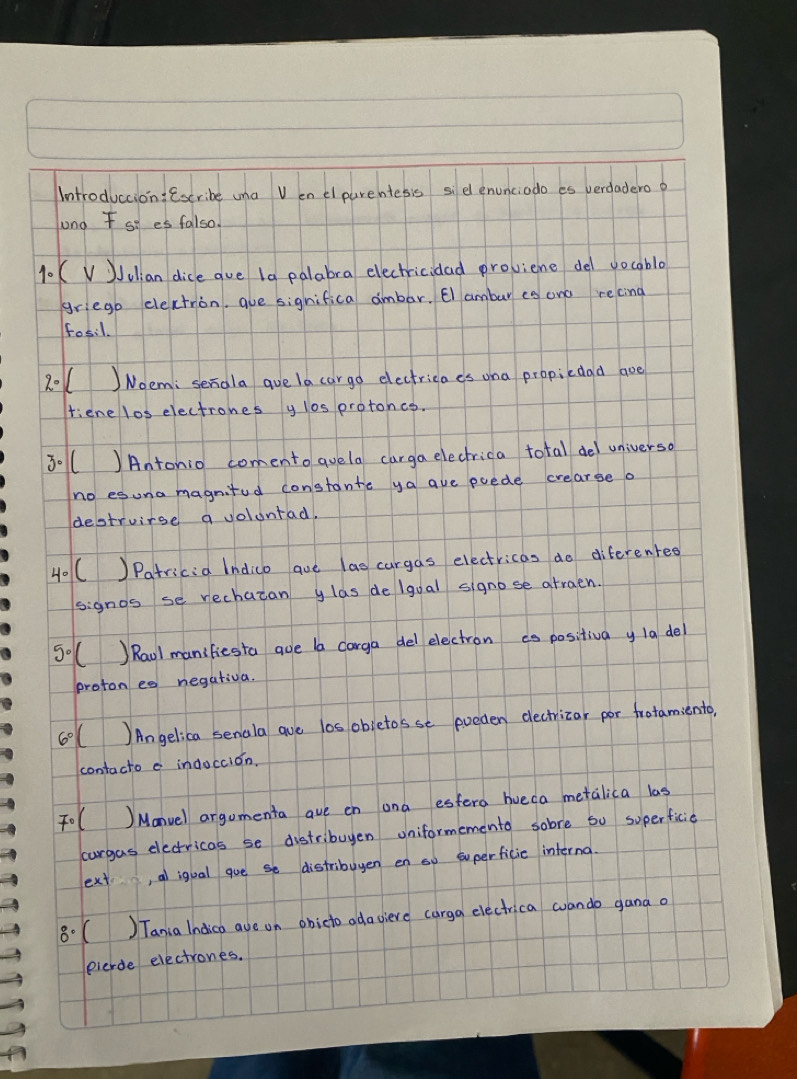 Introducción: Escribe una V en el parentesis si el enunciado es verdadero o
una F si es falso.
1. ( V ) Julian dice que la palabra electricidad proviene del vocablo
griego elextrón. que significa ámbar. El ambar es una recina
fosil.
2. ( ) Noemi señala que la carga electrica es una propiedad que
tiene los electrones y los protones.
3. ( ) Antonio comento quela carga electrica total del universo
no es una magnitud constante ya que puede crearse o
destruirse a voluntad.
4. ( ) Patricia Indico que las cargas electricas de diferentes
signos se rechazan y las de Igual signo se atraen.
5. ( ) Raul manifiesta que la carga del electron es positiva y la del
proton es negativa.
6. ( ) Angelica senala que los objetos se pueden electrizar por frotamiento,
contacto e inducción.
7. ( ) Manuel argumenta que en una esfera hueca metálica las
cargas electricas se distribuyen uniformemente sobre su superficie
, al igual que se distribuyen en su superficie interna.
8. ( ) Tania Indica que un objeto adquiere carga electrica cuando gana o
pierde electrones.